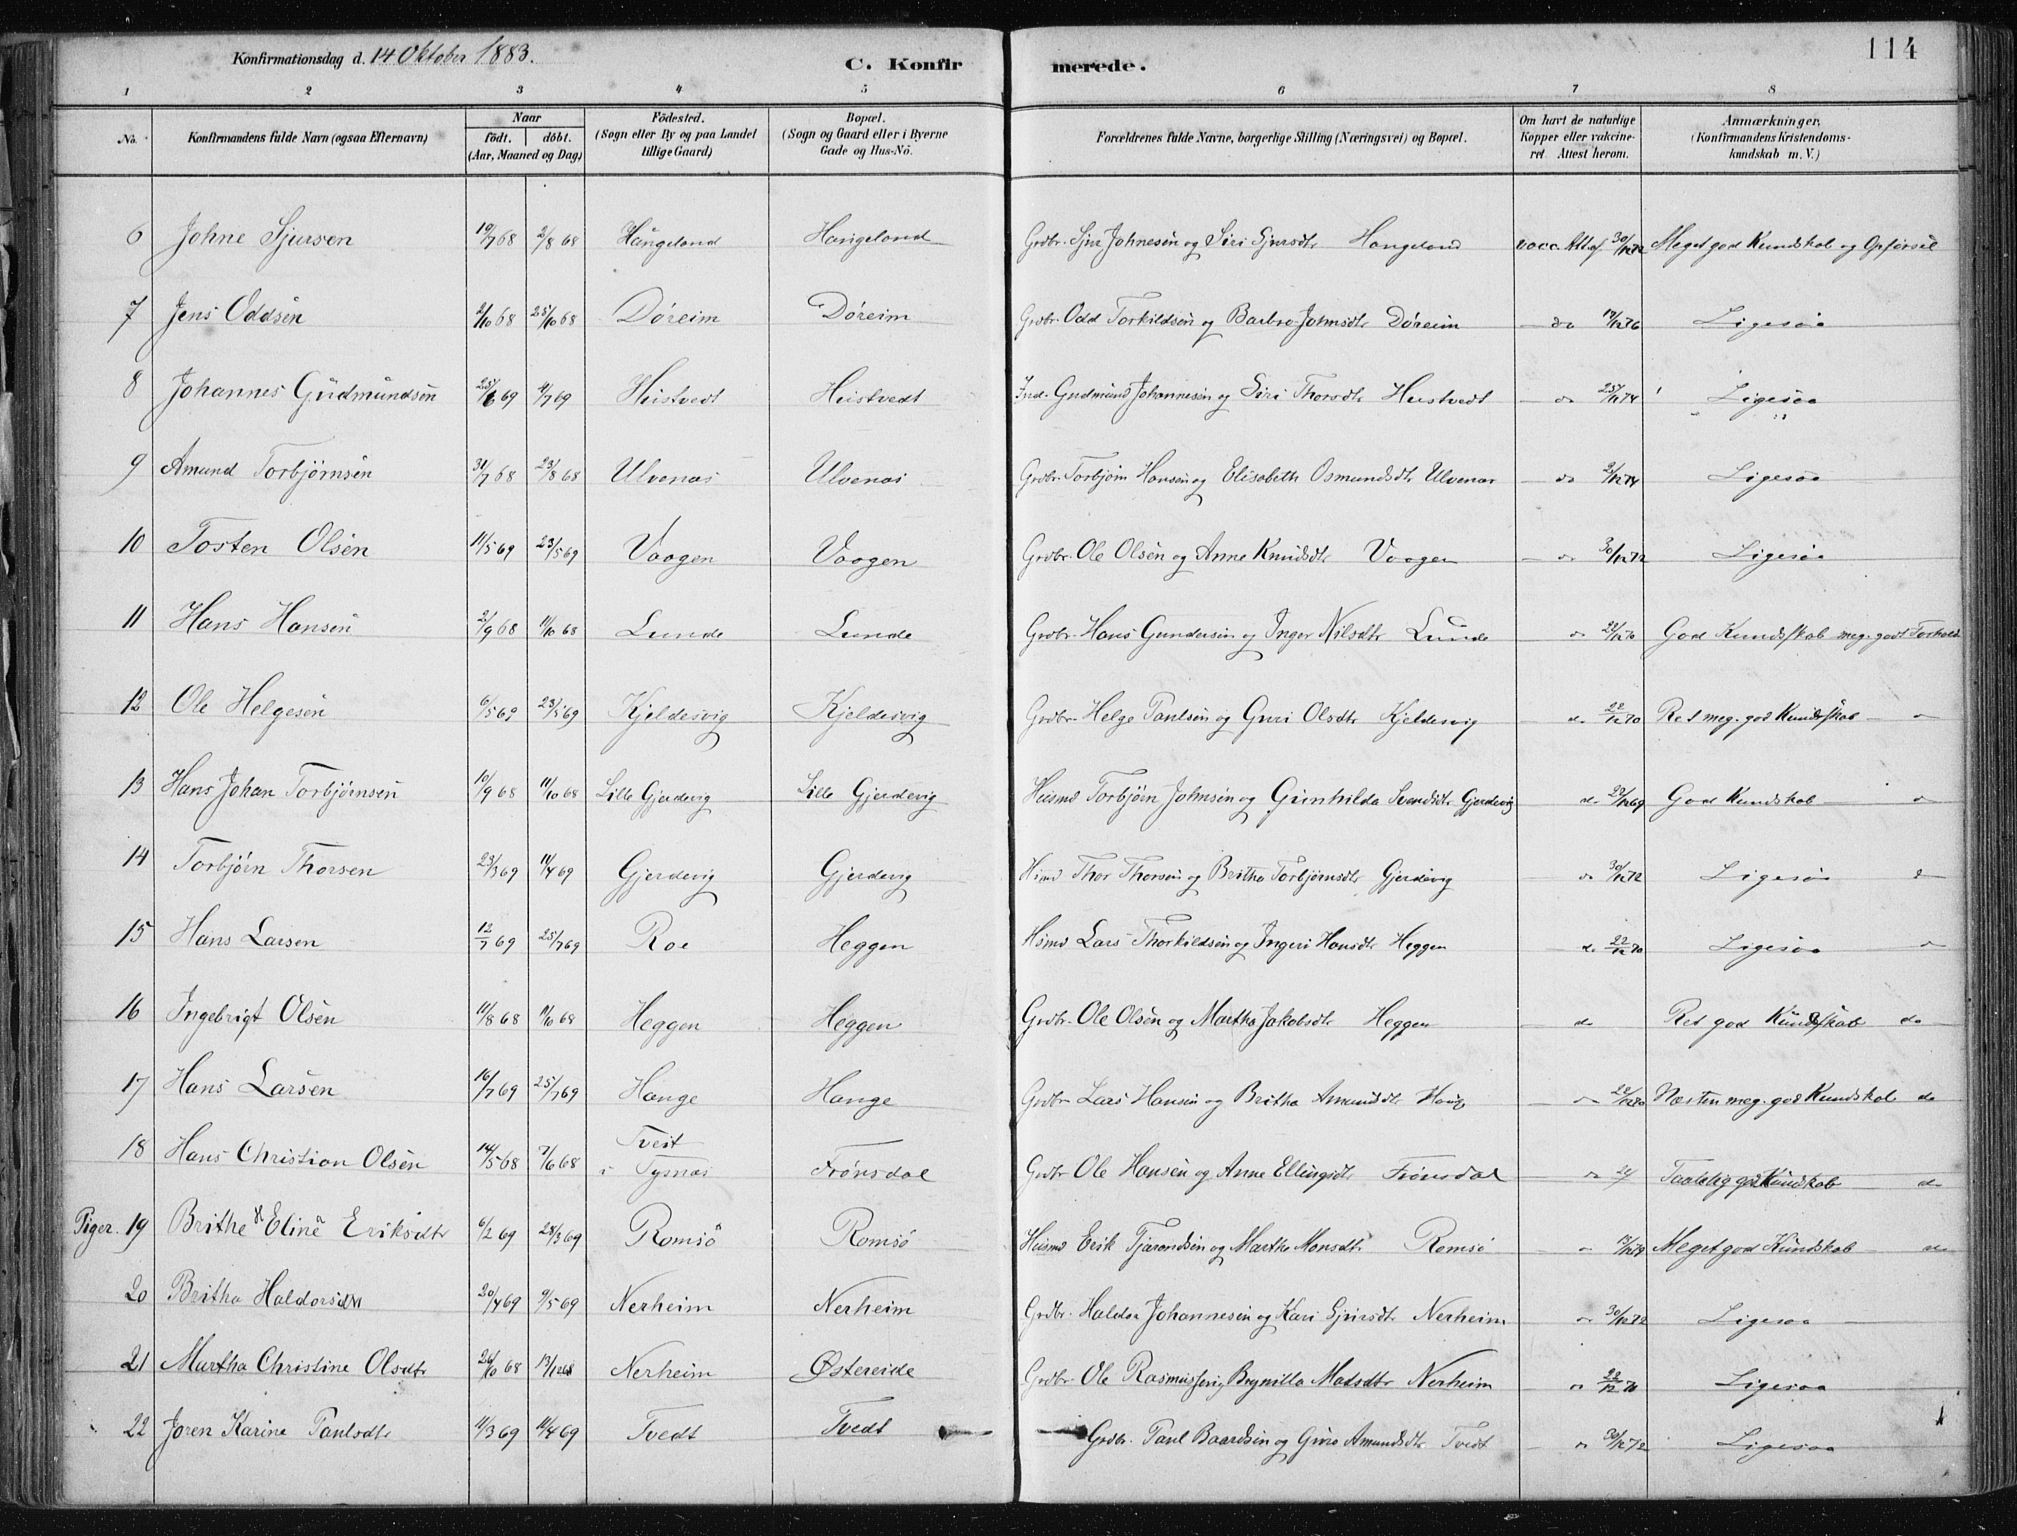 Konfirmationsdag d. 14 Oktober 1883.
C. Konfirmerede.
114
1 2 3 4 5 6 7 8
No. Konfirmandens fulde Navn (ogsaa Efternavn) Naar födt. döbt. (Aar, Maaned og Dag) Födested. (Sogn eller By og paa Landet tillige Gaard) Bopæl. (Sogn og Gaard eller i Byerne Gade og Hus-No. Forældrenes fulde Navne, borgerlige Stilling (Næringsvei) og Bopæl. Om havt de naturlige Kopper eller vakcineret Attest herom. Anmærkninger, (Konfirmandens Kristendomskundskab m. V.)
6 Johne Sjursen 19/7 68 2/8 68 Haugeland Haugeland Grdbr. Sjur Johnesen og Siri Sjursdtr Haugeland vacc. Att. af 30/12 72 Meget god Kundskab og Opførsel
7 Jens Oddsen 2/10 68 25/10 68 Døreim Døreim Grdbr. Odd Torkildsen og Barbro Johnsdtr Døreim do 17/12 76 Ligesaa
8 Johannes Gudmundsen 25/6 69 4/7 69 Heistvedt Heistvedt Ind. Gudmund Johannesen og Siri Thorsdtr Heistvedt do 25/11 74 Ligesaa
9 Amund Torbjørnsen 31/7 68 23/8 68 Ulvenas Ulvenas Grdbr. Torbjørn Hansen og Elisabeth Osmundsdtr Ulvenas do 2/12 74 Ligesaa
10 Tosten Olsen 11/5 69 23/5 69 Vaagen Vaagen Grdbr. Ole Olsen og Anne Knudsdtr Vaagen do 30/12 72 Ligesaa
11 Hans Hansen 2/9 68 11/10 68 Lunde Lunde Grdbr. Hans Gundersen og Inger Nilsdtr Lunde do 22/12 70 God Kundskab meg. godt Forhold
12 Ole Helgesen 6/5 69 23/5 69 Kjeldesvig Kjeldesvig Grdbr. Helge Paulsen og Guri Olsdtr Kjeldesvig do 22/12 70 Ret meg. god Kundskab do
13 Hans Johan Torbjørnsen 10/9 68 11/10 68 Lille Gjerdevig Lille Gjerdevig Husmd Torbjørn Johnsen og Gunhilda Svendsdtr Gjerdevig do 22/12 69 God Kundskab do
14 Torbjørn Thorsen 23/3 69 11/4 69 Gjerdevig Gjerdevig Hsmd Thor Thorsen og Britha Torbjørnsdtr Gjerdevig do 30/12 72 Ligesaa do
15 Hans Larsen 12/7 69 25/7 69 Roe Heggen Hsmd Lars Thorkildsen og Ingeri Hansdtr Heggen do 22/12 70 Ligesaa do
16 Ingebrigt Olsen 11/8 68 11/10 68 Heggen Heggen Grdbr. Ole Olsen og Martha Jakobsdtr Heggen do Ret god Kundskab do
17 Hans Larsen 16/7 69 25/7 69 Hauge Hauge Grdbr Lars Hansen og Britha Amundsdtr Haug do 22/12 70 Næsten meg. god Kundskab do
18 Hans Christian Olsen 14/5 68 7/6 68 Tveit i Tysnæs Frønsdal Grdbr Ole Hansen og Anne Ellingsdtr Frønsdal do Taalelig god Kundskab do
Piger. 19 Brithe Eline Eriksdtr 6/2 69 28/3 69 Romsö Romsö Husmd Erik Tjærandsen og Martha Monsdtr Romsö do Meget god Kundskab do
20 Britha Haldorsdtr 20/4 69 9/5 69 Nerheim Nerheim Grdbr. Haldor Johannesen og Kari Sjursdtr Nerheim do 30/12 72 Ligesaa
21 Martha Christine Olsdtr 26/10 68 13/12 68 Nerheim Østereide Grdbr. Ole Rasmussen og Brynilla Matsdtr Nerheim do 22/12 70 Ligesaa
22 Joren Karine Paulsdtr 11/3 69 11/4 69 Tvedt Tvedt Grdbr. Paul Baardsen og Guro Amundsdtr Tvedt do 30/12 72 Ligesaa